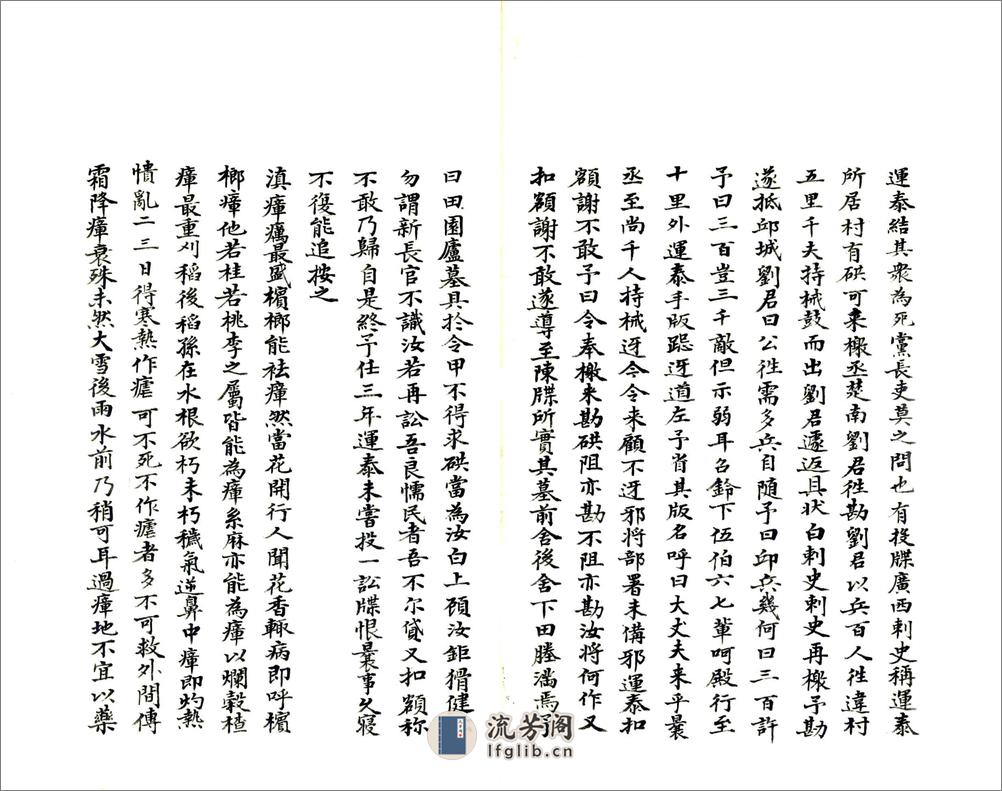 運泰結其衆為死黨長吏莫之問也有投牒廣西刺史稱運泰
所居村有硔可采檄丞楚南劉君徃勘劉君以兵百人徃違村
五里千夫持械鼓而出劉君遽返具狀白刺史刺史再檄予勘
遂抵邱城劉君曰公徃需多兵自随予曰邱兵幾何曰三百許
予曰三百豈三千敵但示弱耳召鈴下伍伯六七輩呵殿行至
十里外運泰手版跽迓道左予省其版名呼曰大丈夫来乎曩
丞至尚千人持械迓令令来顧不迓邪將部署未備邪運泰扣
額謝不敢予曰令奉檄来勘硔阻亦勘不阻亦勘汝將何作又
扣額謝不敢遂導至陳牒所實其墓前舍後舍下田塍滿焉予
曰田園廬墓具於令甲不得求硔當為汝白上顧汝鉅猾健
勿謂新長官不識汝若再訟吾良懦民者吾不尔貸又扣額称
不敢乃歸自是終予任三年運泰未嘗投一訟牒恨曩事久寝
不復能追按之
滇瘴癘最盛檳榔能袪瘴然當花開行人聞花香輙病即呼檳
榔瘴他若桂若桃李之屬皆能為瘴糸麻亦能為瘴以爛穀楂
瘴最重刈稻後稻孫在水根欲朽未朽穢氣逆鼻中瘴即灼熱
憒亂二三日得寒熱作瘧可不死不作瘧者多不可救外間傳
霜降瘴衰殊未然大雪後雨水前乃稍可耳過瘴地不宜以藥
流芳阁
lfglib.cn